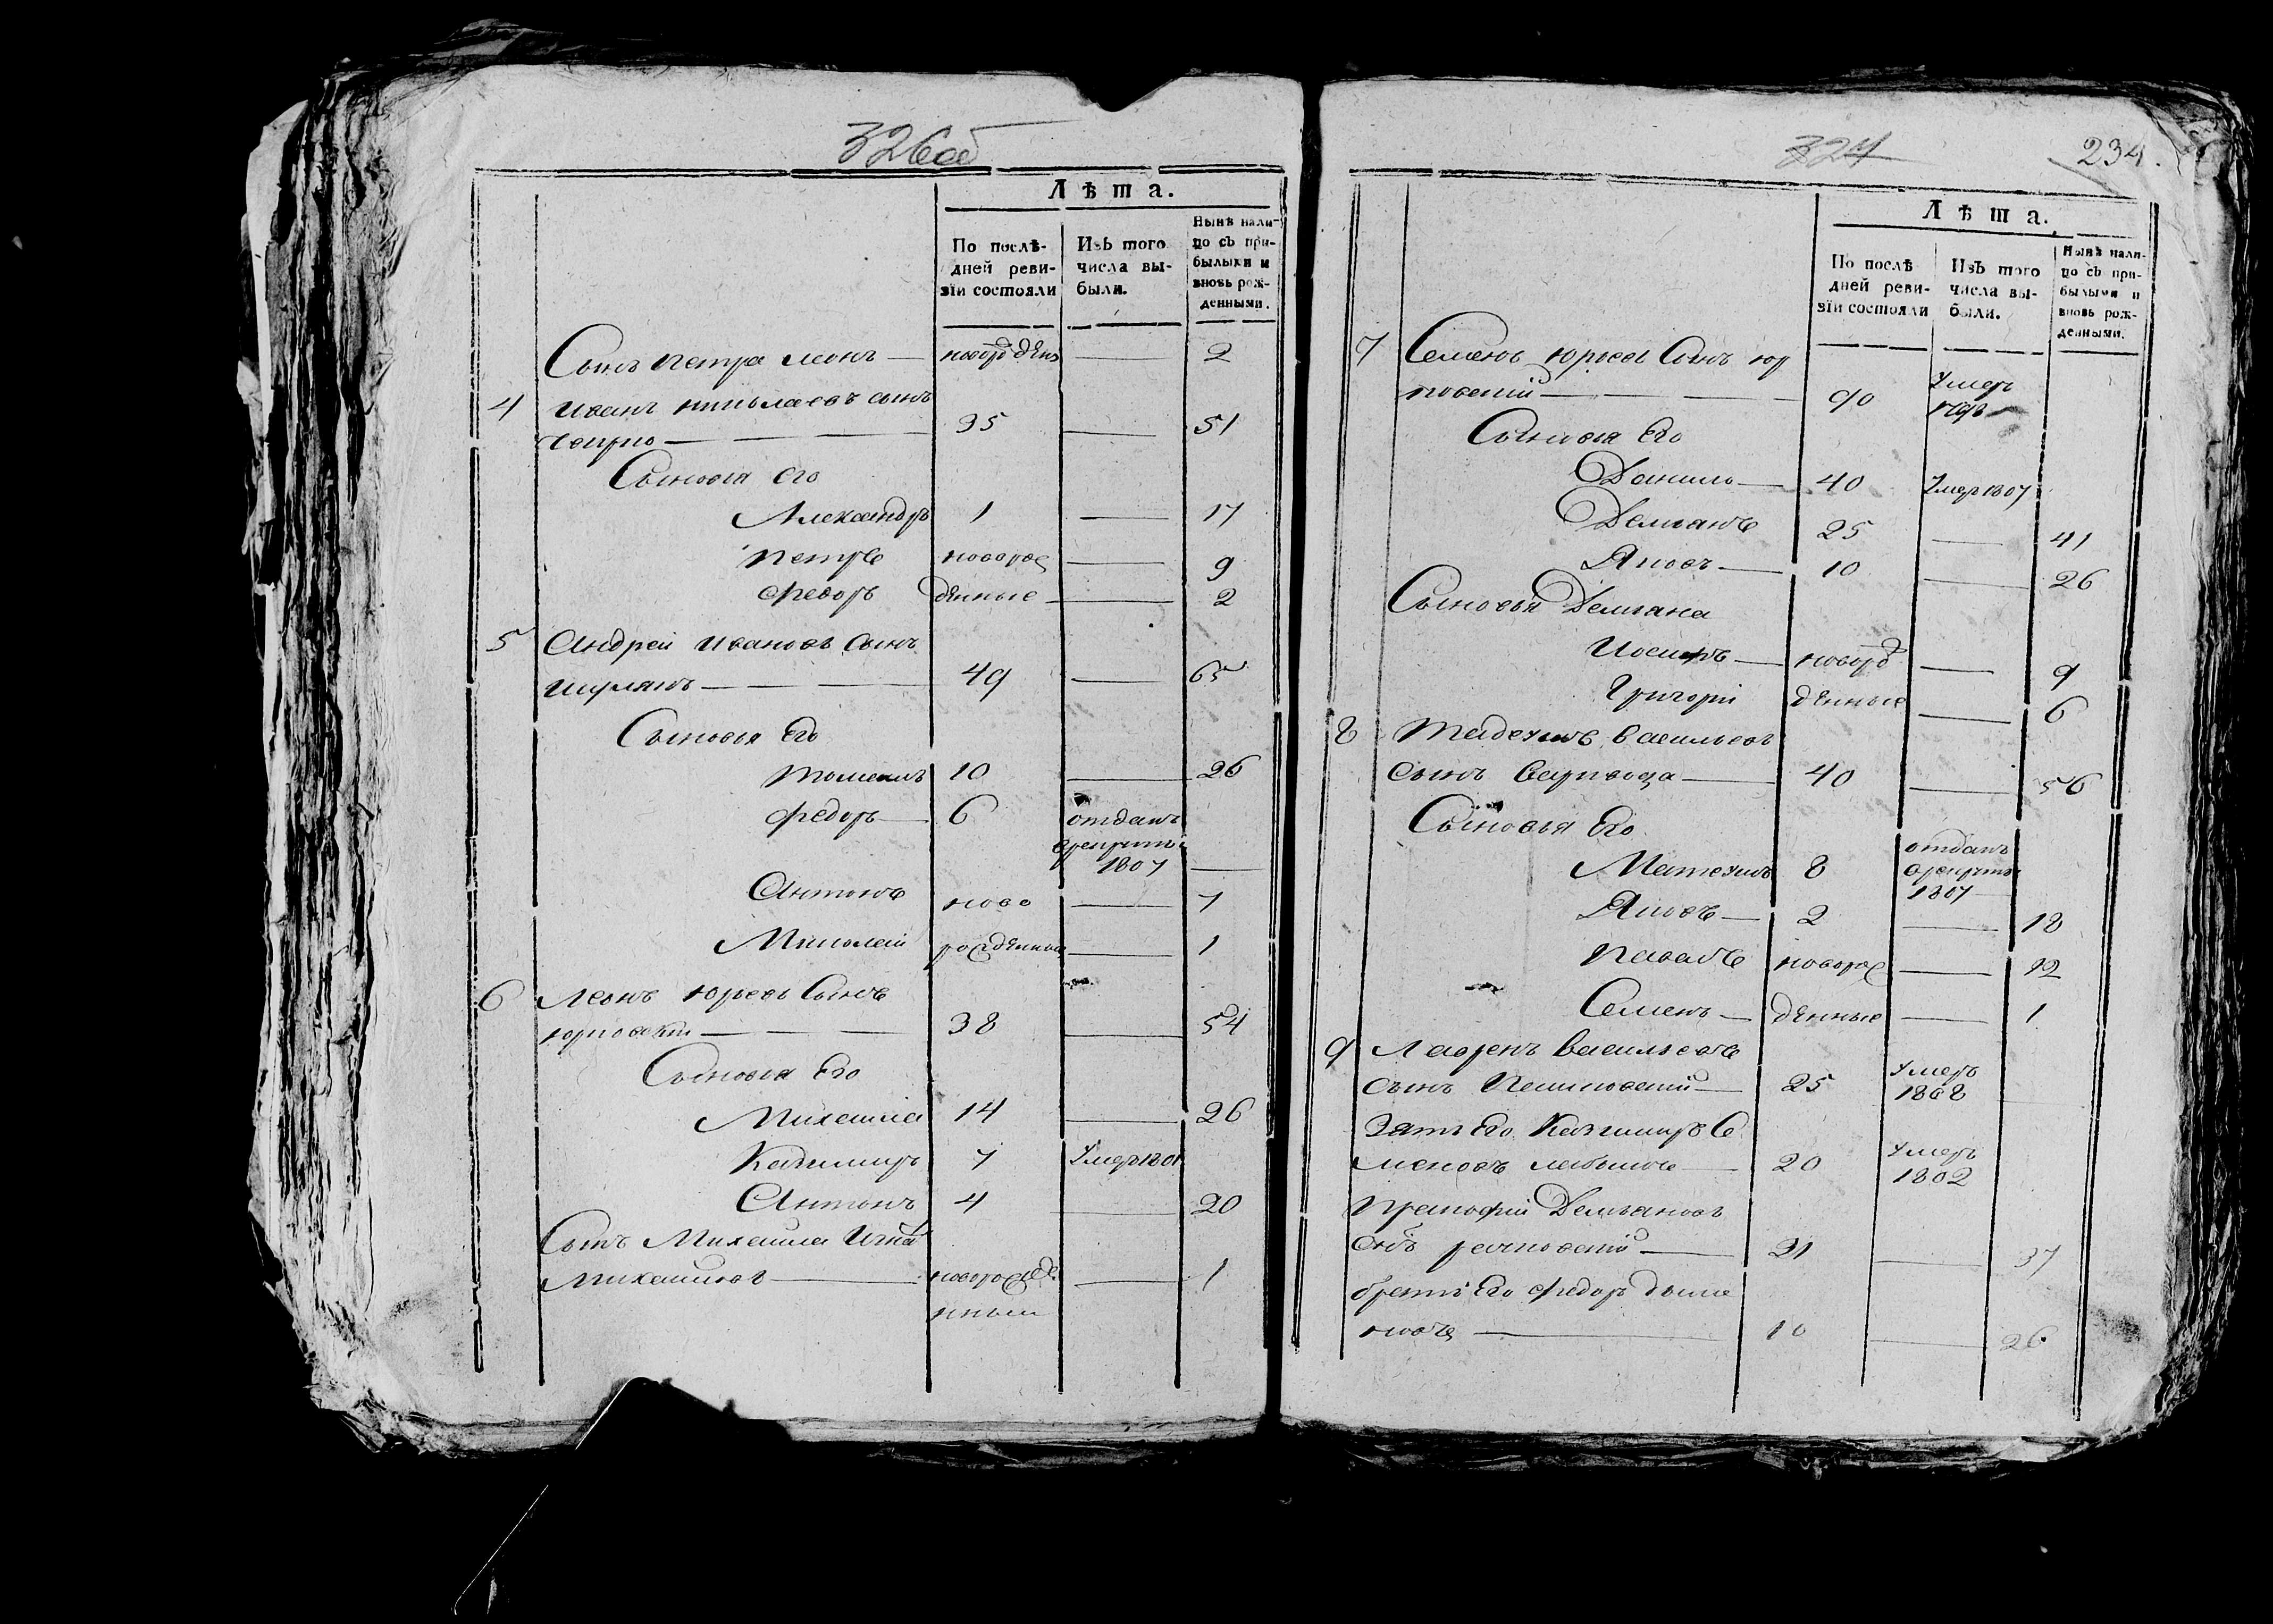 326об
Лѣта.
По послѣ-
дней реви-
зїи состояли
Изъ того
числа вы-
были.
Нынѣ нали-
цо съ при-
былыми и
вновь рож-
денными.
Сынъ петра леонъ — новорожденъ — 2
4 иванъ николаевъ сынъ
35 — 51
Сыновья его
Александръ 1 — 17
петръ новорож — 9
федоръ денные — 2
5 Андрей ивановъ сынъ
49 — 65
Сыновья Его
10 — 26
федоръ — 6 отданъ
врекруты
1807 —
Антонъ ново — 7
Миколай рожденные — 1
6 леонъ юрьевъ Сынъ
юрковскій — 38 — 54
Сыновья Его
Михаила 14 — 26
Казимиръ 7 Умеръ 1801
Антонъ 4 — 20
Сынъ Михаила
Михаиловъ — новорожде — 1
нный
327 234.
Лѣта.
По послѣ
дней реви-
зїи состояли
Изъ того
числа вы-
были.
Нынѣ нали-
цо съ при-
былыми и
вновь рож-
денными.
7 Семенъ юрьевъ Сынъ юр
ковскій — 90 Умеръ
Сыновья Его
Данило — 40 Умеръ 1807
Демьянъ 25 — 41
Яковъ — 10 — 26
Сыновья Демьяна
Иосипъ — новорож — 9
Григорій денные — 6
8 Тадеушъ васильевъ
сынъ — 40 — 56
Сыновья Его
Матеушъ 8 отданъ
врекруты
1807
Яковъ — 2 — 18
Павалъ новорож — 12
Семенъ — денные — 1
9 Лавренъ васильевъ
сынъ — 25 Умеръ
1808
Зять Его Казимиръ Се
меновъ — 20 Умеръ
1802
Прокофій Демьяновъ
сынъ — 21 — 37
братъ Его федоръ демья
новъ — 10 — 26